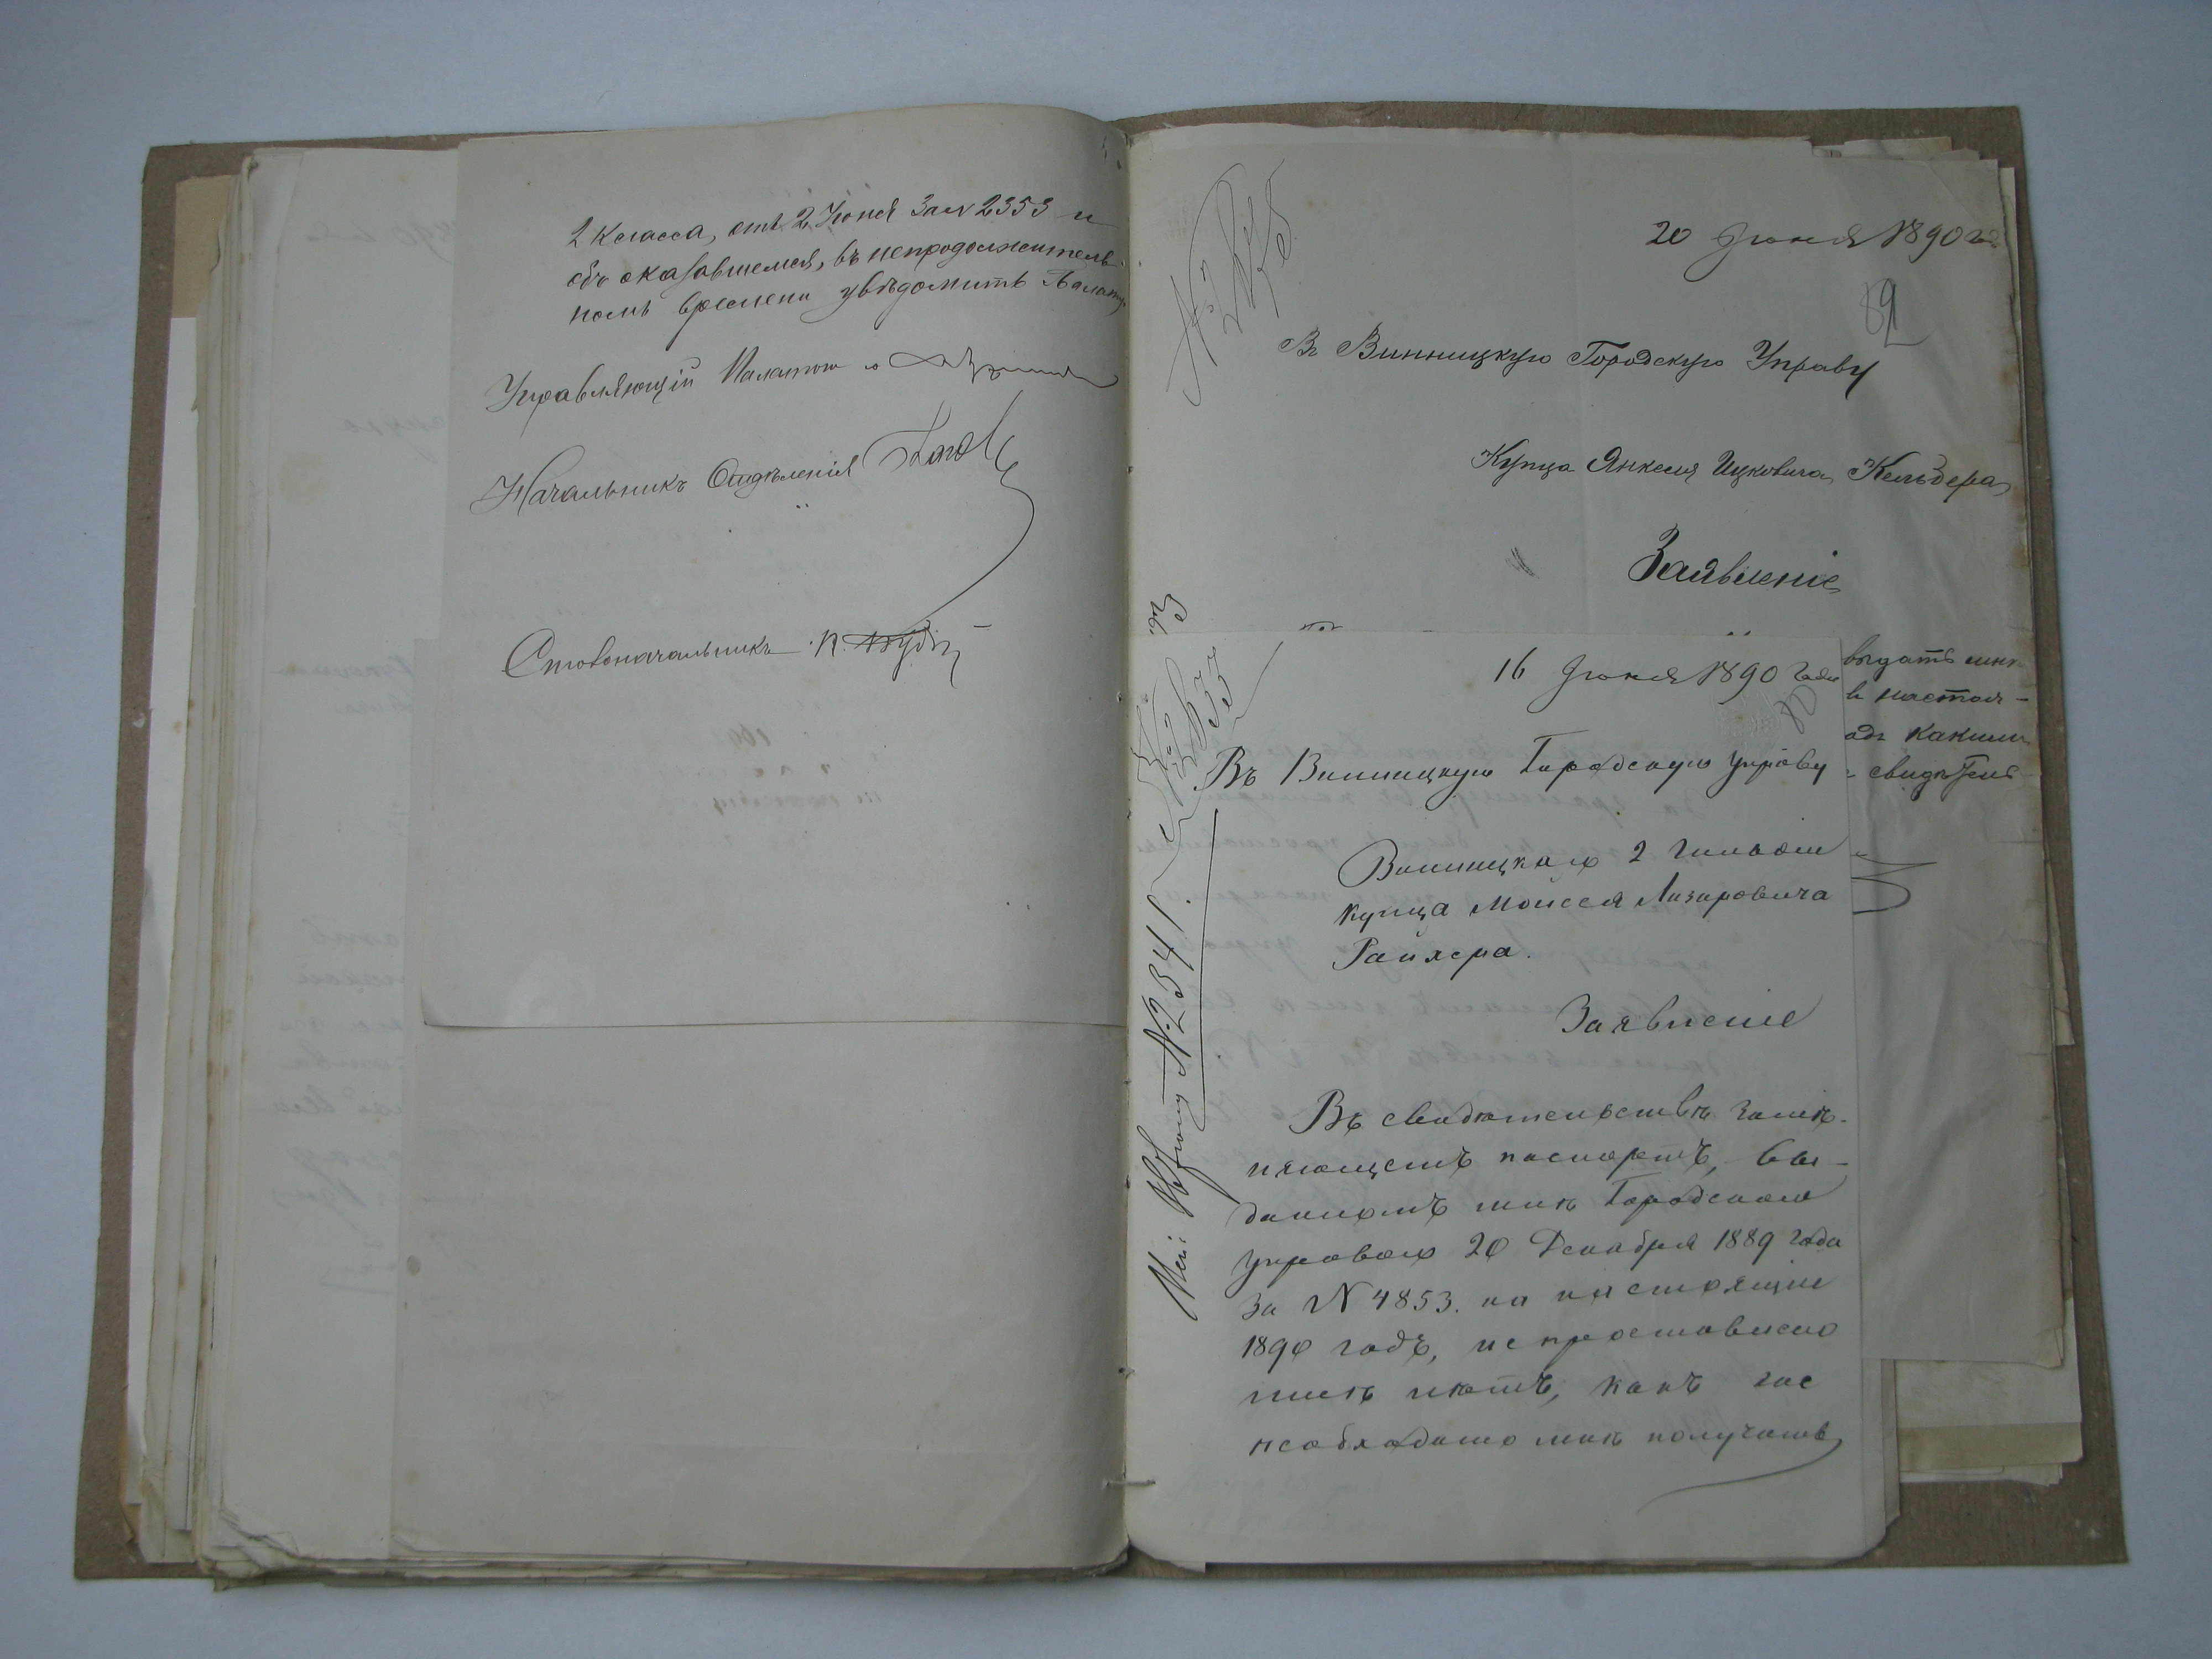 2 класса, отъ 2 Іюня за № 2353 и
объ оказавшемся, въ непродолжитель-
номъ времени увѣдомить Палату.
Управляющій Палатою
Начальникъ Отдѣленія
Столоначальникъ
20 Іюня 1890 года
82
Въ Винницкую Городскую Управу
Купца Янкеля Ицковича Кельдера
Заявленіе
выдать мнѣ
въ настоя-
какими
свидѣтел
16 Іюня 1890 года
Въ Винницкую Городскую Управу
Винницкаго 2 гильдіи
Купца Моисея Лазаровича
Райхера.
Заявленіе
Въ свидѣтельствѣ замѣ-
няющемъ паспортъ, вы-
данномъ мнѣ Городскою
Управою 20 Декабря 1889 года
за № 4853. на настоящій
1890 годъ, не проставлено
мнѣ лѣтъ, какъ же
необходимо мнѣ получать
№ 2341.